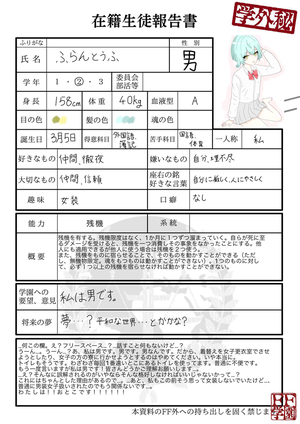 在籍生徒報告書
学外秘
ふりがな
性 別
氏 名 ふらんとうふ 男
学 年 1・②・3 委員会 部活等
身 長 158cm 体 重 40kg 血液型 A
目の色 髪の色 魂の色
誕生日 3月5日 得意科目 外国語、 苦手科目 国語、体育 一人称 私
好きなもの 仲間、徹夜 嫌いなもの 自分、理不尽
大切なもの 仲間、信頼 座右の銘 好きな言葉 自分に厳しく、人にやさしく
趣 味 女装 口 癖 なし
能 力 残機 系 統
概 要
残機を有する。残機限度はなく、1か月に1つずつ溜まっていく。自らが死に至
るダメージを受けると、残機を一つ消費しその事象をなかったことにする。他
人にも適用できるが他人に使う場合は残機を2つ使う。
また、残機をものに宿らせることで、そのものを動かすことができる(ただ
し、無機物限定。魂をもつものは動かすことができない)。1つのものに対し
て、必ず1つ以上の残機を宿らせなければ動かすことができない。
学園への
要望、意見 私は男です。
将来の夢 夢…?平和な世界…とかかな?
…何この欄。え?フリースペース…?…話すこと何もないけど…?
うーん…。うーん…?あ、私は男です。男です。男なんです。だから、着替えを女子更衣室でさせ
ようとしたり、女子の方の寮に行かせようとするのはやめてください。いや本当に。
トイレもそうです。なぜか毎回1番遠いとこにある方のトイレを使ってます。普通に不便です。
もう一度言いますが私は男です!皆さんどうかご理解お願いします…。
…え?そんなに誤解されるのがいやならそんな格好しなければいいじゃないかって…?
これにはちゃんとした理由があるので…。…あと、私もこの前そう思って女装しないでいたけど…。
普通に男装女子扱いされたのでもう関係ないです…。
わたしは!!おとこです!!!!!!!
本資料のFF外への持ち出しを固く禁じます
FF学園